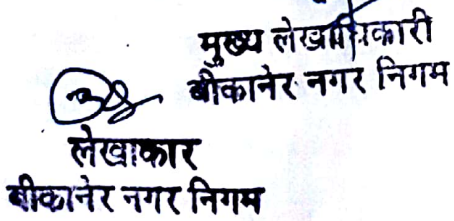 मुख्य लेखाधिकारी
बीकानेर नगर निगम
लेखाकार
बीकानेर नगर निगम